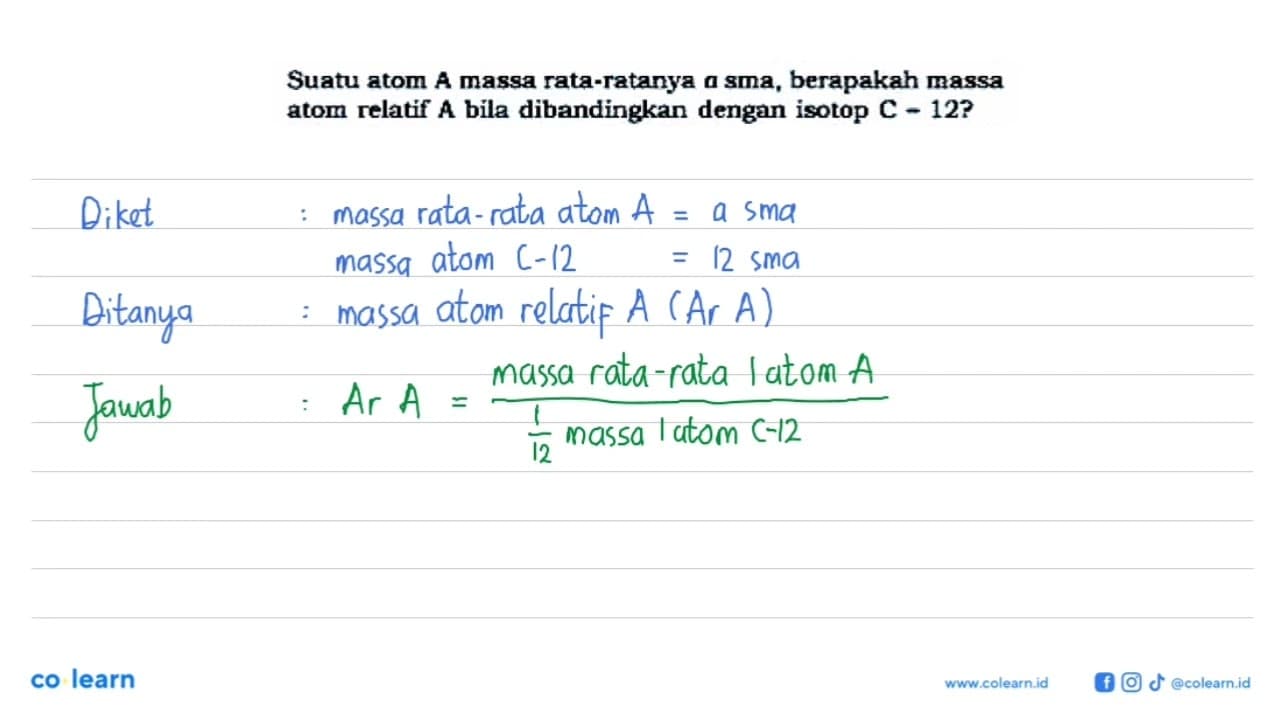 Suatu atom A massa rata-ratanya a sma, berapakah massa
atom relatif A bila dibandingkan dengan isotop C - 12?
Diket : massa rata-rata atom A = a sma
massa atom C-12 = 12 sma
Ditanya : massa atom relatif A (Ar A)
Jawab : Ar A = massa rata-rata 1 atom A
1/12 massa 1 atom C-12
co learn
www.colearn.id @colearn.id